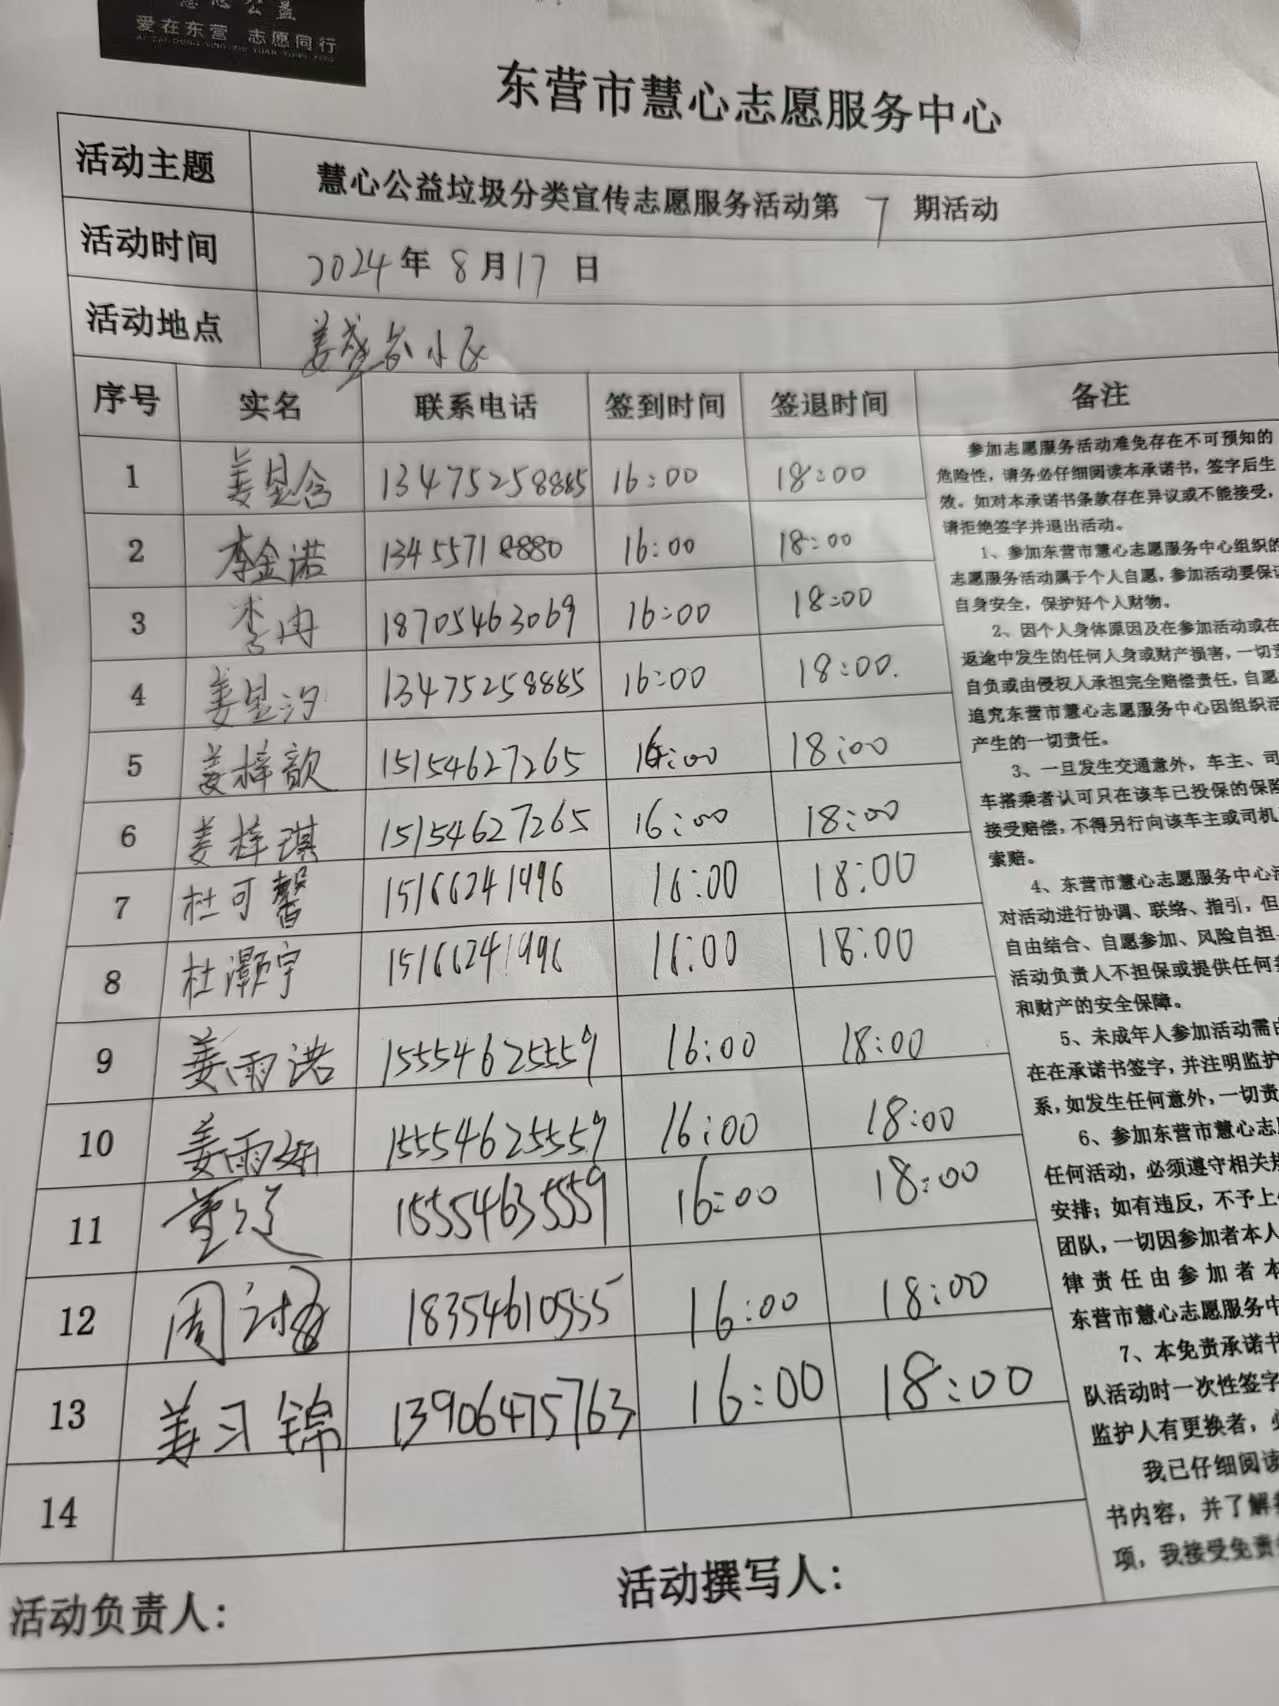 慧心公益
爱在东营 志愿同行
东营市慧心志愿服务中心
活动主题 慧心公益垃圾分类宣传志愿服务活动第 7 期活动
活动时间 2024年 8月17 日
活动地点 小区
序号 实名 联系电话 签到时间 签退时间 备注
1 姜昱含 13475258885 16:00 18:00
2 李金诺 13455718880 16:00 18:00
3 李冉 18705463069 16:00 18:00
4 姜昱汐 13475258885 16:00 18:00.
5 姜梓歆 15154627265 16:00 18:00
6 姜梓琪 15154627265 16:00 18:00
7 杜可馨 15166241996 16:00 18:00
8 杜灏宇 15166241996 16:00 18:00
9 姜雨诺 15554625559 16:00 18:00
10 姜雨妍 15554625559 16:00 18:00
11 15554635559 16:00 18:00
12 周 18354610555 16:00 18:00
13 姜习锦 13906475763 16:00 18:00
14
参加志愿服务活动难免存在不可预知的
危险性，请务必仔细阅读本承诺书，签字后生
效。如对本承诺书条款存在异议或不能接受，
请拒绝签字并退出活动。
1、参加东营市慧心志愿服务中心组织的
志愿服务活动属于个人自愿，参加活动要保证
自身安全，保护好个人财物。
2、因个人身体原因及在参加活动或在
返途中发生的任何人身或财产损害，一切责
自负或由侵权人承担完全赔偿责任，自愿
追究东营市慧心志愿服务中心因组织活
产生的一切责任。
3、一旦发生交通意外，车主、司
车搭乘者认可只在该车已投保的保险
接受赔偿，不得另行向该车主或司机
索赔。
4、东营市慧心志愿服务中心活
对活动进行协调、联络、指引，但
自由结合、自愿参加、风险自担
活动负责人不担保或提供任何
和财产的安全保障。
5、未成年人参加活动需由
在在承诺书签字，并注明监护
系，如发生任何意外，一切责
6、参加东营市慧心志
任何活动，必须遵守相关规
安排；如有违反，不予上
团队，一切因参加者本人
律责任由参加者本
东营市慧心志愿服务中
7、本免责承诺书
队活动时一次性签字
监护人有更换者，必
我已仔细阅读
书内容，并了解
项，我接受免责
活动负责人： 活动撰写人：